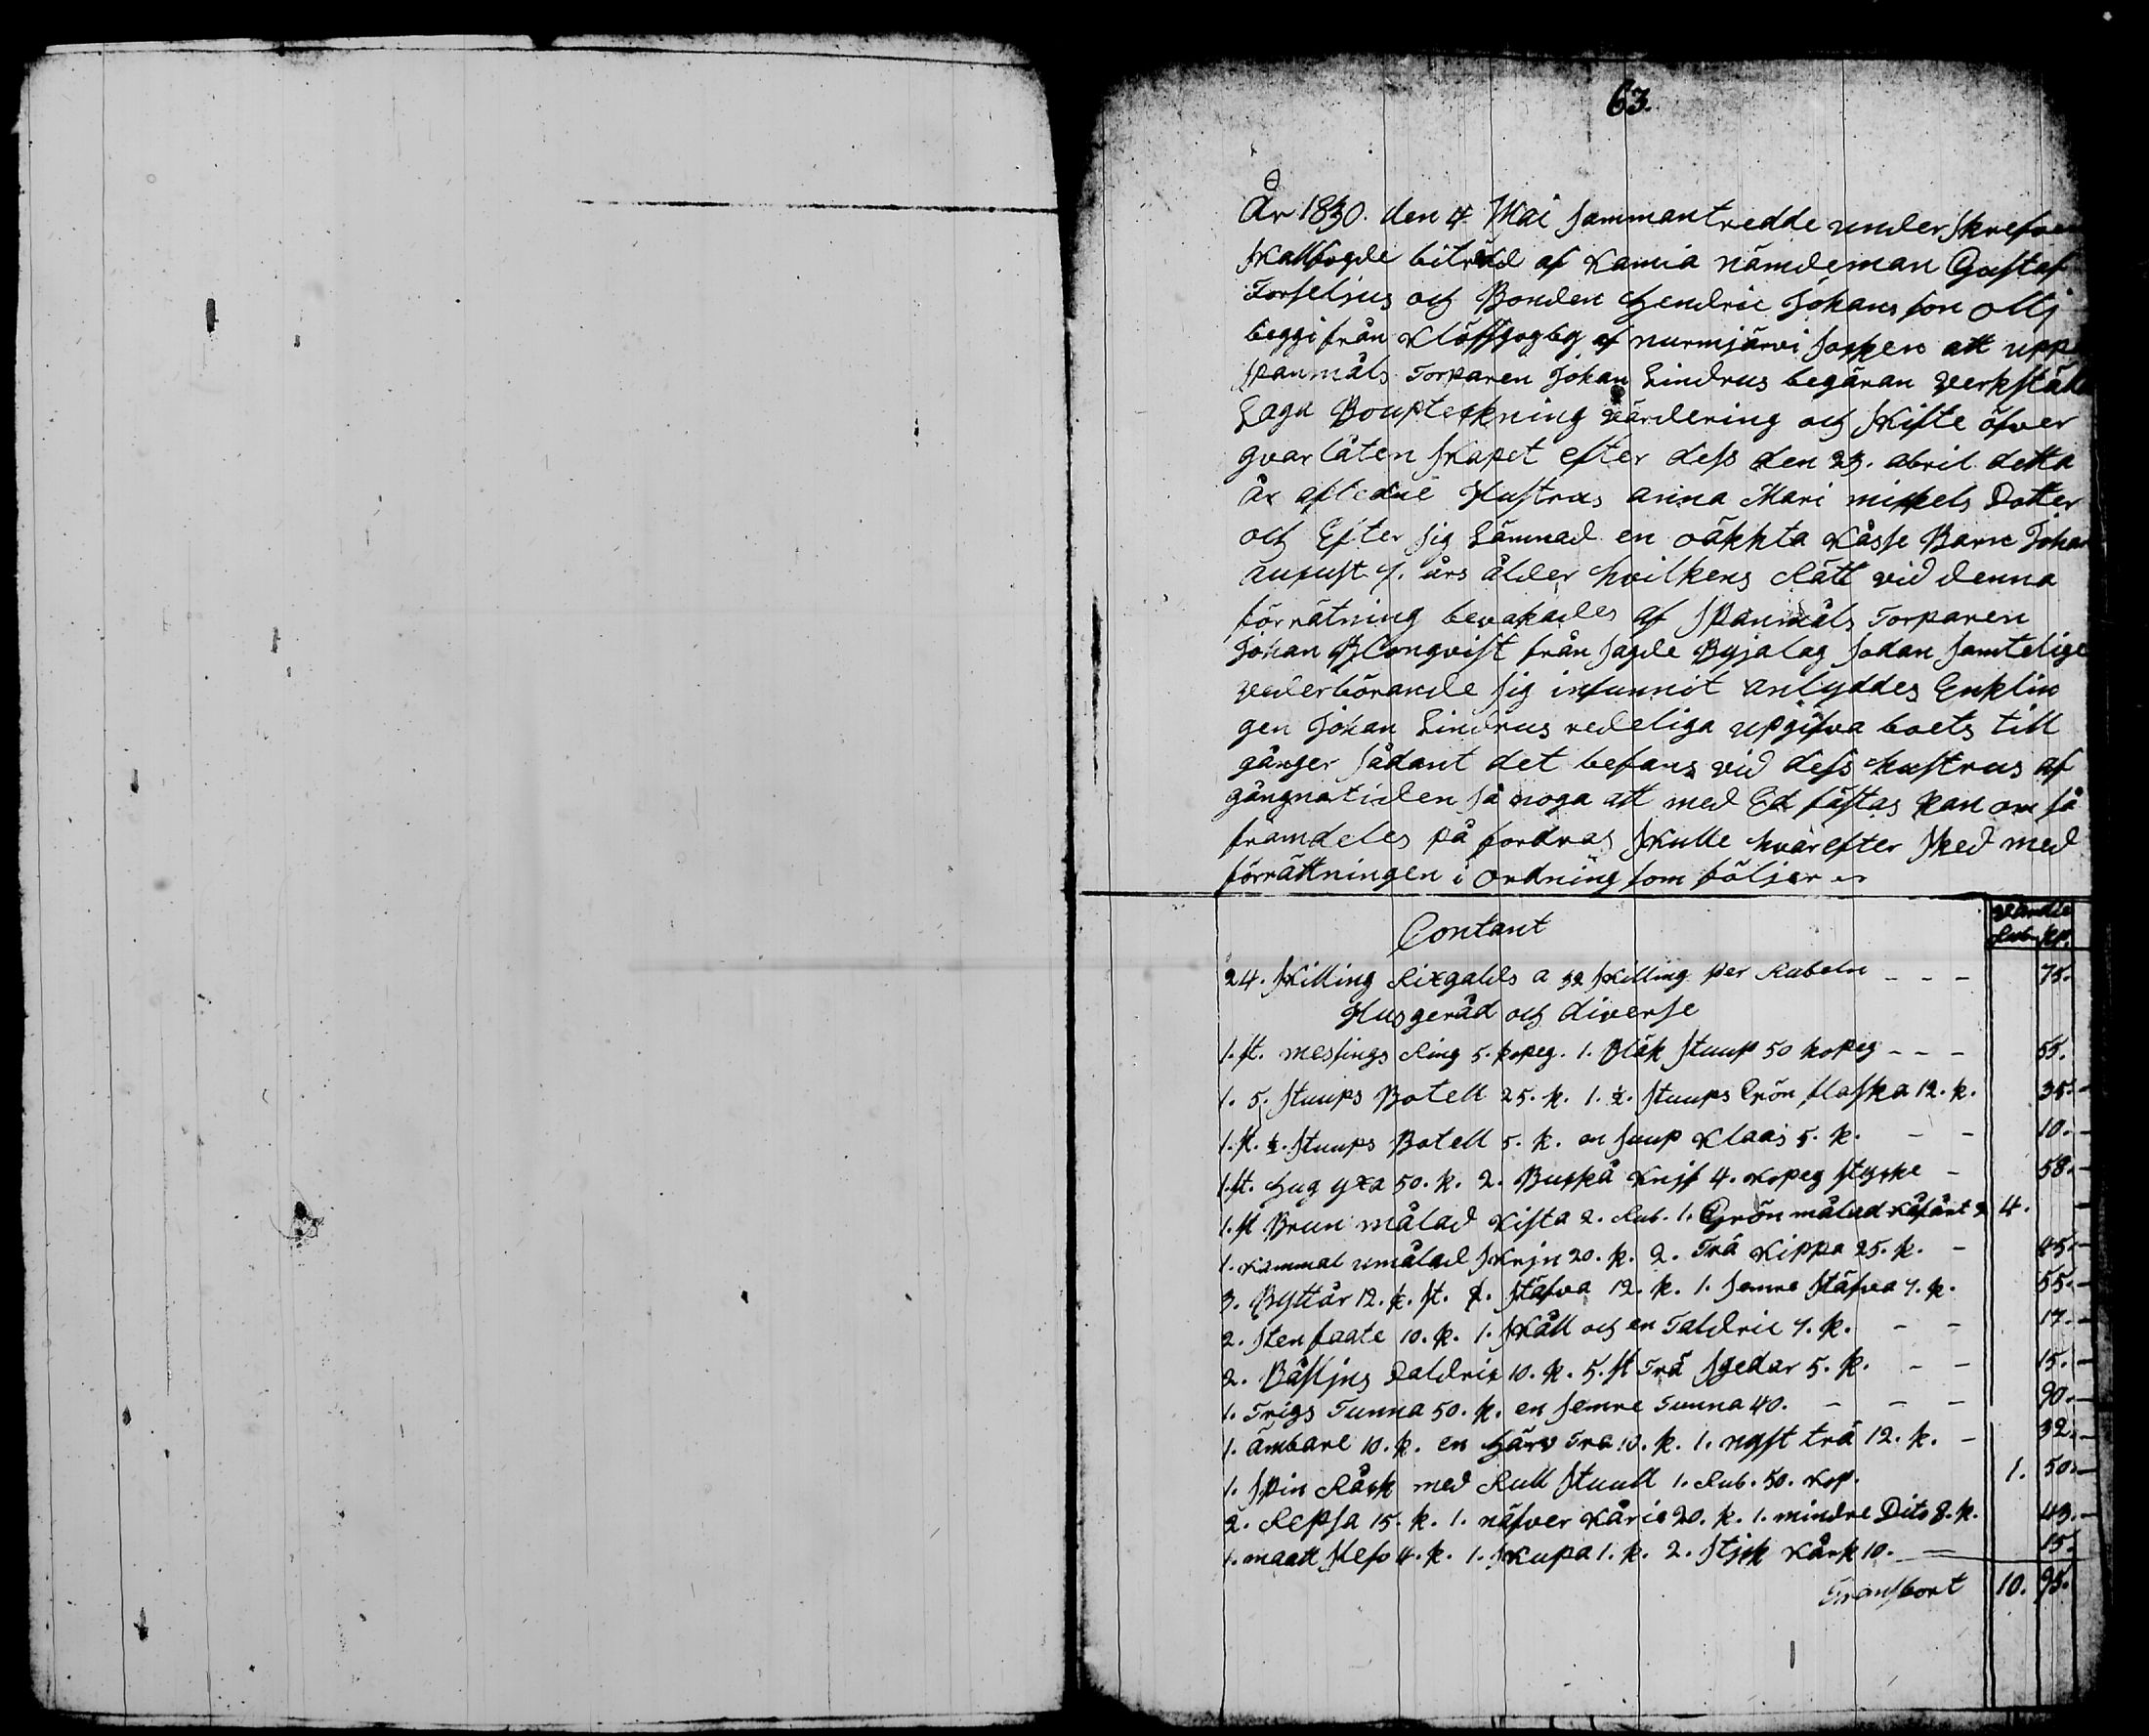 63.
År 1830. den 4 Mai sammantredde underskrefven
Skallfogde biträd af Kamia nämdeman Gustaf
Forseljus och Bonden Hendric Johans son Olli
beggi från Klöfsgogby af nurmjärvi Socken att uppå
spanmåls Torparen Johan Lindrus begäran verkstäld
Laga Boupteckning värdering och skifte öfver
qvarlåtenskapet efter dess den 23. abril detta
år afledne Hustrus anna Mari mickels Dotter
och Efter sig Lämnad en oäkhta Kåsse Barn Johan
August 7. års ålder hvilkens Rätt vid denna
förrätning bevakades af Spanmåls Torparen
Johan Blomqvist från sagde Byjalag sedan samtelige
vederbörande sig infunnit anlyddes Enklin
gen Johan Lindrus redeliga upgifva boets till
gånger sådant det befans vid dess hustrus af
gångnatiden så noga att med Ed fästas kan om så
framdeles på fordras skulle hvarefter sked med
förrättningen i ordning som följer
Contant
värdie
Rub Kp.
24. Skilling Rixgalds a 32 skilling per Rubeln - - - 75.
Husgeråd och diverse
1. st. messings Ring 5. kopeg. 1. Bläk stuup 50 kopeg - - - 55.
1. 5. stuups Botell 25. k. 1. ½. stuups Grön flaska 12. k. 35.
1. st. ½. stuups Botell 5. k. en suup Klaas 5. k. - - 10.
1. st. hug yxa 50. k. 2. Buckå Knif 4. kopeg stycke - 58.
1. st Brun målad Kista 2. Rub. 1. Grön målad Kåfärt 2 4.
1. Kammal umålad skrin 20. k. 2. Trä Kippa 25. k. - 45.
3. Byttår 12. k. st. 1. ståfva 12. k. 1. semre ståfva 7. k. 55.
2. sten faate 10. k. 1. skåll och en Taldric 7. k. - - 17.
2. Båsljns Daldrie 10. k. 5. st Trä sgedar 5. k. - - 15.
1. Trigs Tunna 50. k. en semre Tunna 40. - - - 90.
1. ämbare 10. k. en härv Tra 10. k. 1. nyst trä 12. k. - 32.
1. spin Råck med Rull stuull 1. Rub. 50. kop. 1. 50.
2. Repsa 15. k. 1. näfver Kårie 20. k. 1. mindre Dito 8. k. 43.
1. maatt slef 4. k. 1. skupa 1. k. 2. stjck Kårk 10. 15.
Transbort 10. 95.